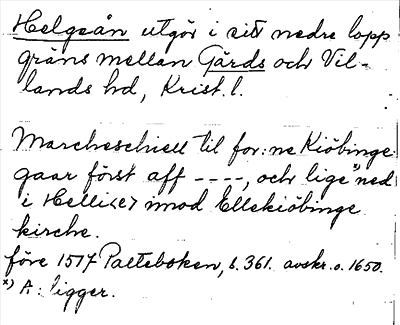 Helgeån utgör i sitt nedre lopp
gräns mellan Gärds och Vil-
lands hd, Krist. l.
Marcheschiell til for: ne Kiöbinge
gaar först aff ----, och lige x) ned
i Helli<e> imod Ellekiöbinge
kirche.
före 1517 Palteboken, s. 361. avskr. o. 1650.
x) A: ligger.